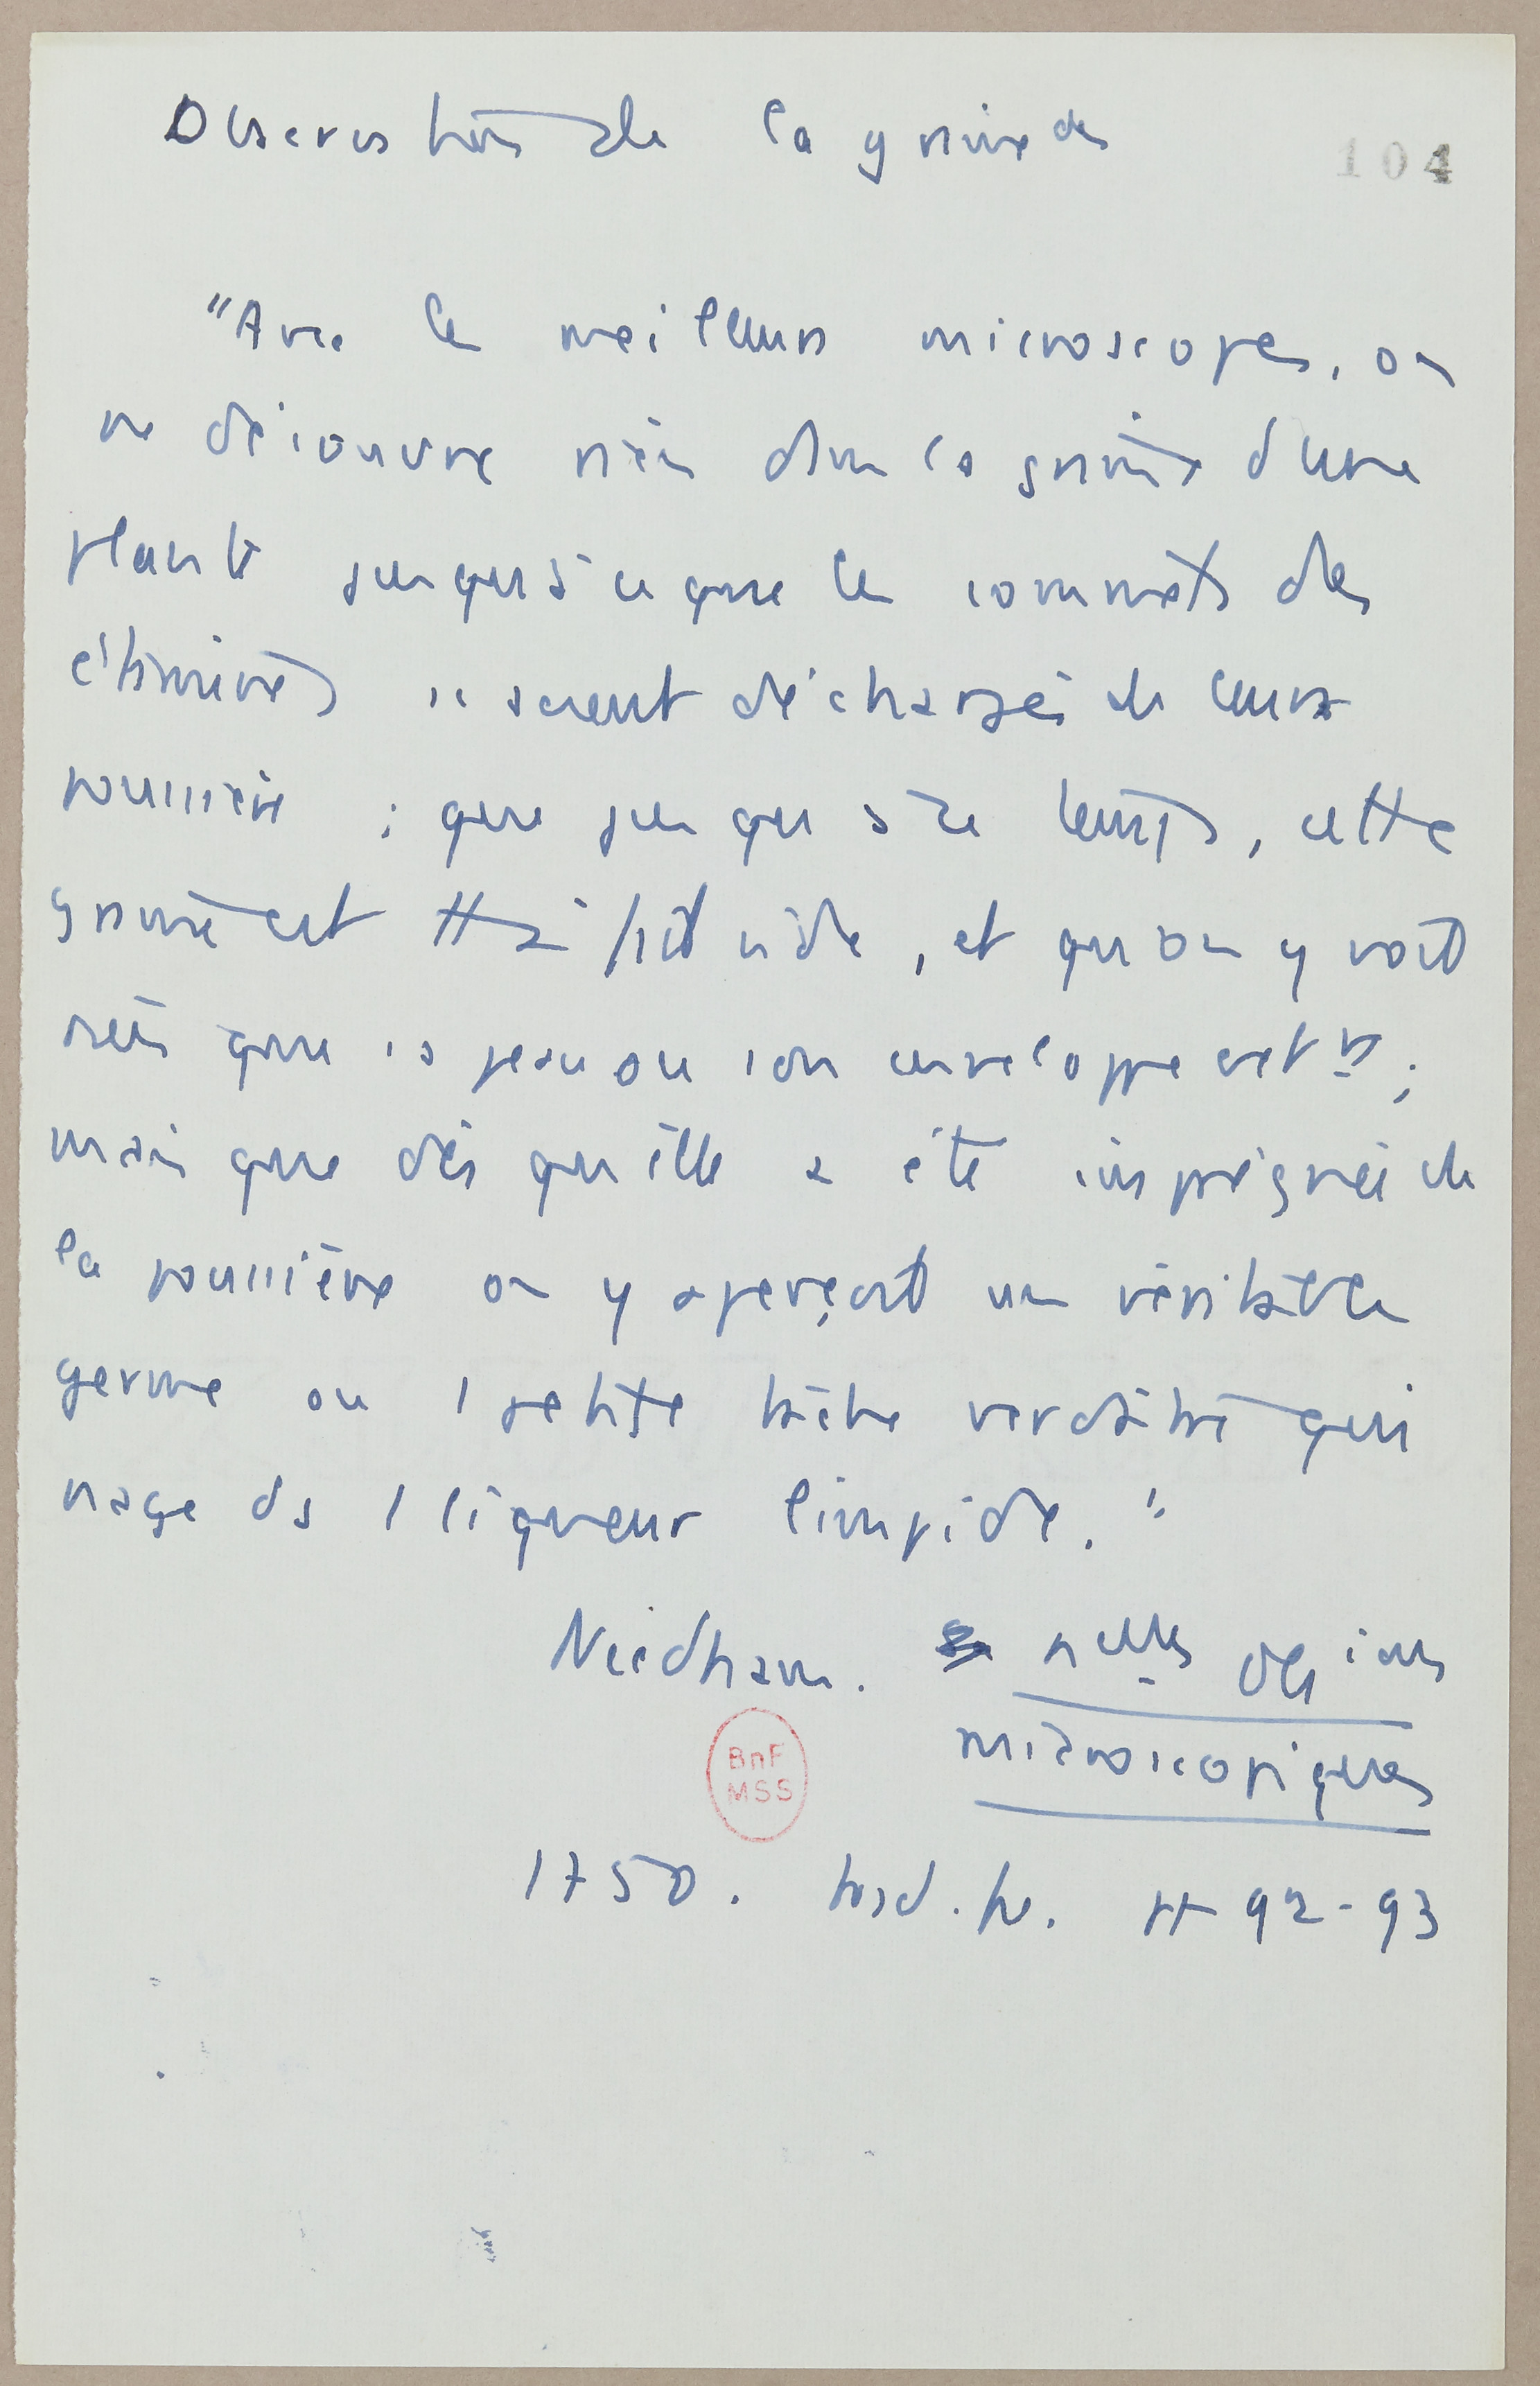 Observation de la graine des
104
"Avec les meilleurs microscopes, on
ne découvre rien dans la graine d'une
plante jusqu'à ce que les sommets des
étamines se soient déchargés de leurs
poussière ; que jusqu'à ce temps, cette
graine est vide, et qu'on y voit
rien que la peau ou son enveloppe ext re ;
mais que dès qu'elle a été imprégnée de
la poussière on y aperçoit un véritable
germe ou 1 petite tâche verdâtre qui
nage ds 1 liqueur limpide."
Needham. nelles obs ions
microscopiques
BnF
MSS
1750. trad. fr. pp 92-93